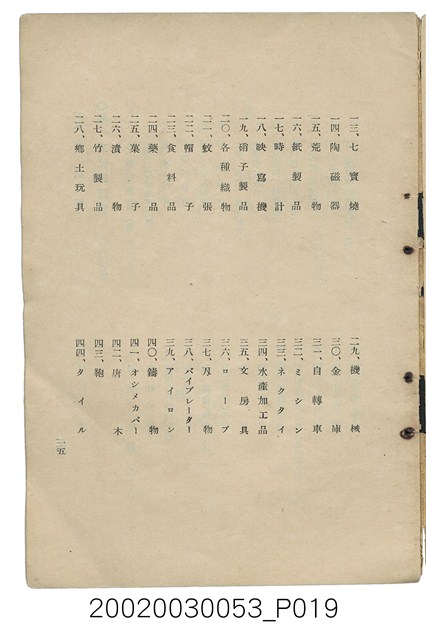 一三、七寶燒
一四、陶磁器
一五、荒物
一六、紙製品
一七、時計
一八、映寫機
一九、硝子製品
二〇、各種織物
二一、蚊張
二二、帽子
二三、食料品
二四、藥品
二五、菓子
二六、漬物
二七、竹製品
二八、鄉土玩具
二九、機械
三〇、金庫
三一、自轉車
三二、ミシン
三三、ネクタイ
三四、水產加工品
三五、文房具
三六、ロープ
三七、刄物
三八、バイブレーター
三九、アイロン
四〇、鑄物
四一、オシメカバー
四二、唐木
四三、鞄
四四、タイル
二五
20020030053_P019